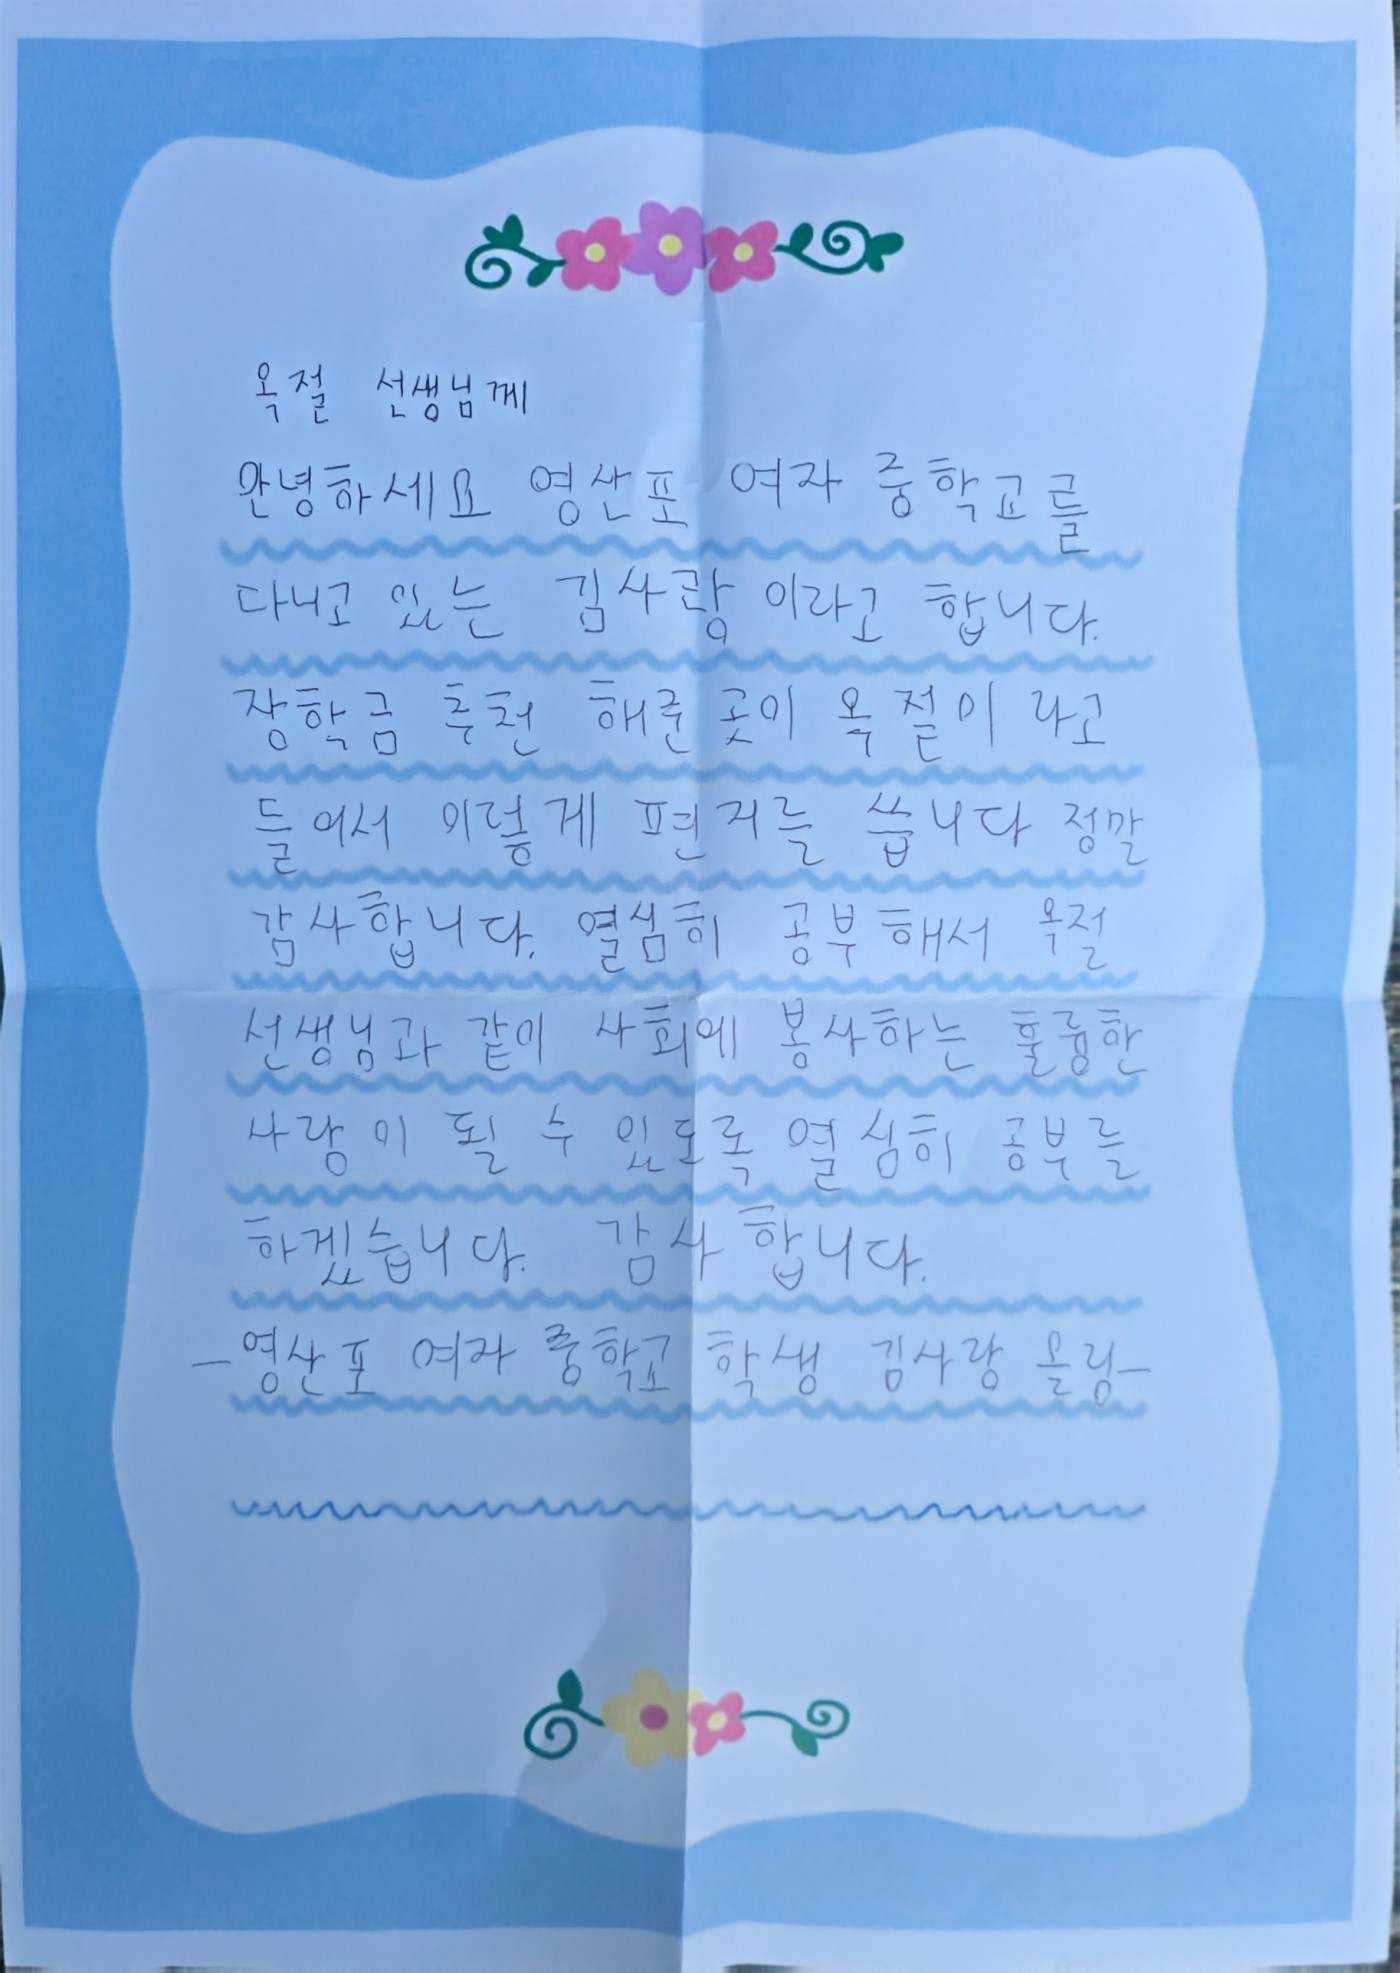 옥절 선생님께
안녕하세요 영산포 여자 중학교를
다니고 있는 김사랑 이라고 합니다.
장학금 추천 해준 곳이 옥절이 라고
들어서 이렇게 편지를 씁니다 정말
감사합니다. 열심히 공부해서 옥절
선생님과 같이 사회에 봉사하는 훌륭한
사랑이 될 수 있도록 열심히 공부를
하겠습니다. 감사합니다.
-영산포 여자 중학교 학생 김사랑 올림-